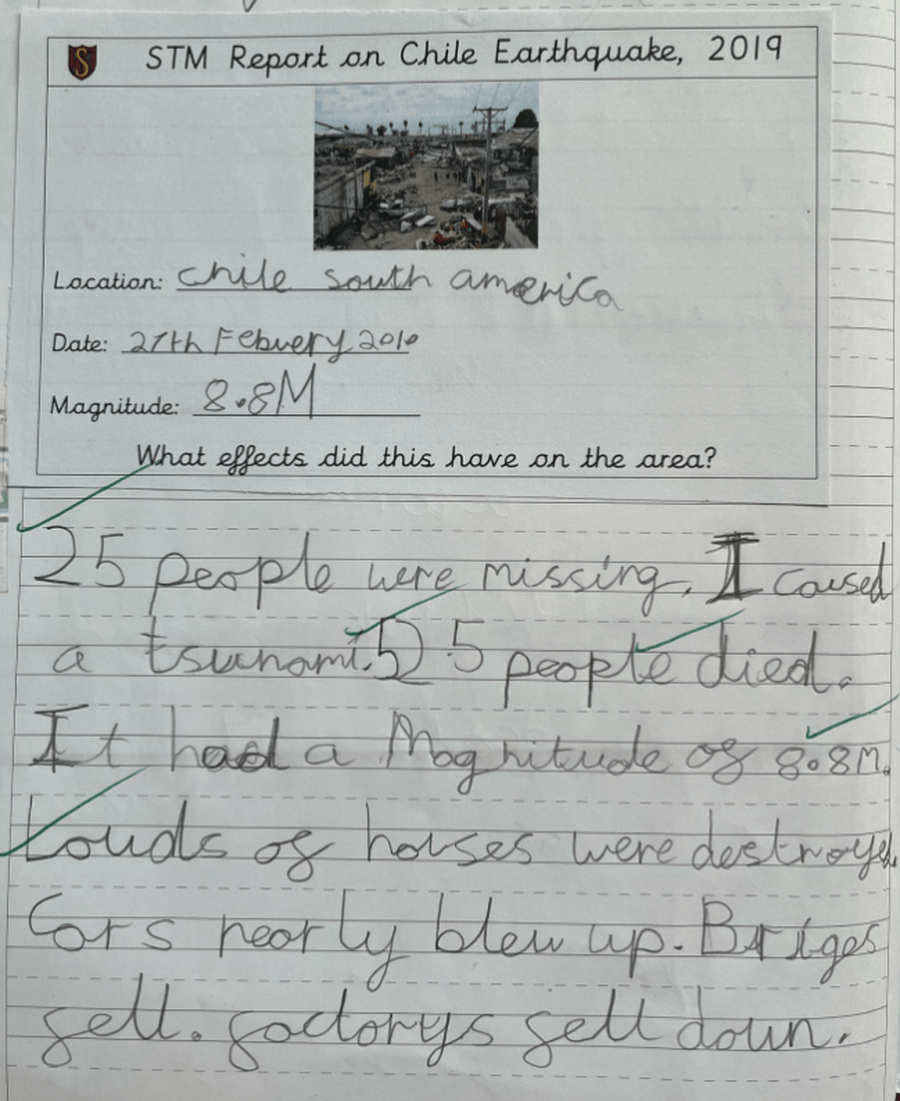 S
STM Report on Chile Earthquake, 2019
Location: Chile south america
Date: 27th Febuery 2010
Magnitude: 8.8M
What effects did this have on the area?
25 people were missing. I caused
a tsunami. 525 people died.
It had a Magnitude of 8.8M.
Louds of houses were destroyed.
Cars nearly blew up. Briges
fell. factorys fell down.